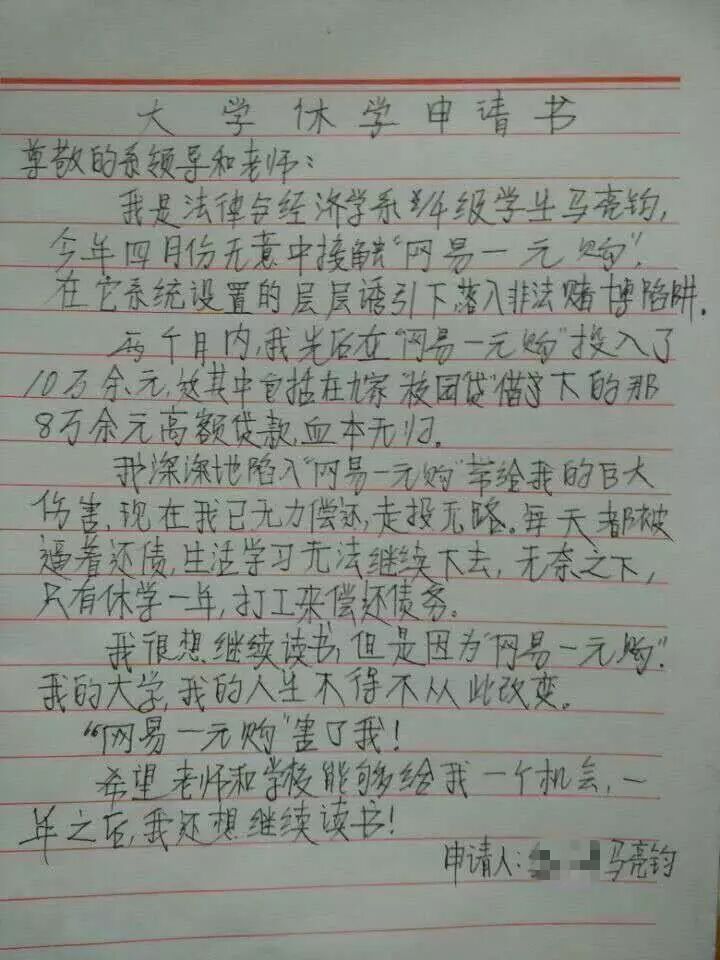 大学休学申请书
尊敬的系领导和老师:
我是法律与经济学系14级学生马亮钧,
今年四月份无意中接触“网易一元购”,
在它系统设置的层层诱引下落入非法赌博陷阱.
两个月内,我先后在“网易一元购”投入了
10万余元,这其中包括在九家“校园贷”借下的那
8万余元高额贷款,血本无归。
我深深地陷入“网易一元购”带给我的巨大
伤害,现在我已无力偿还,走投无路。每天都被
逼着还债,生活学习无法继续下去,无奈之下,
只有休学一年,打工来偿还债务。
我很想继续读书,但是因为“网易一元购”.
我的大学,我的人生不得不从此改变。
“网易一元购”害了我!
希望老师和学校能够给我一个机会,一
年之后,我还想继续读书!
申请人: 马亮钧